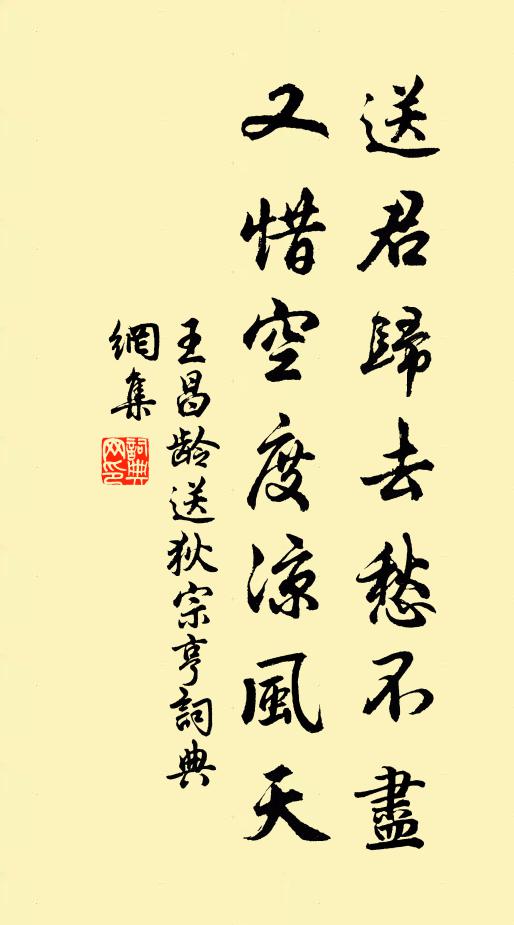 送君歸去愁不盡
又惜空度涼風天
王昌齡送狄宗亨詞典
網集
詞典網印